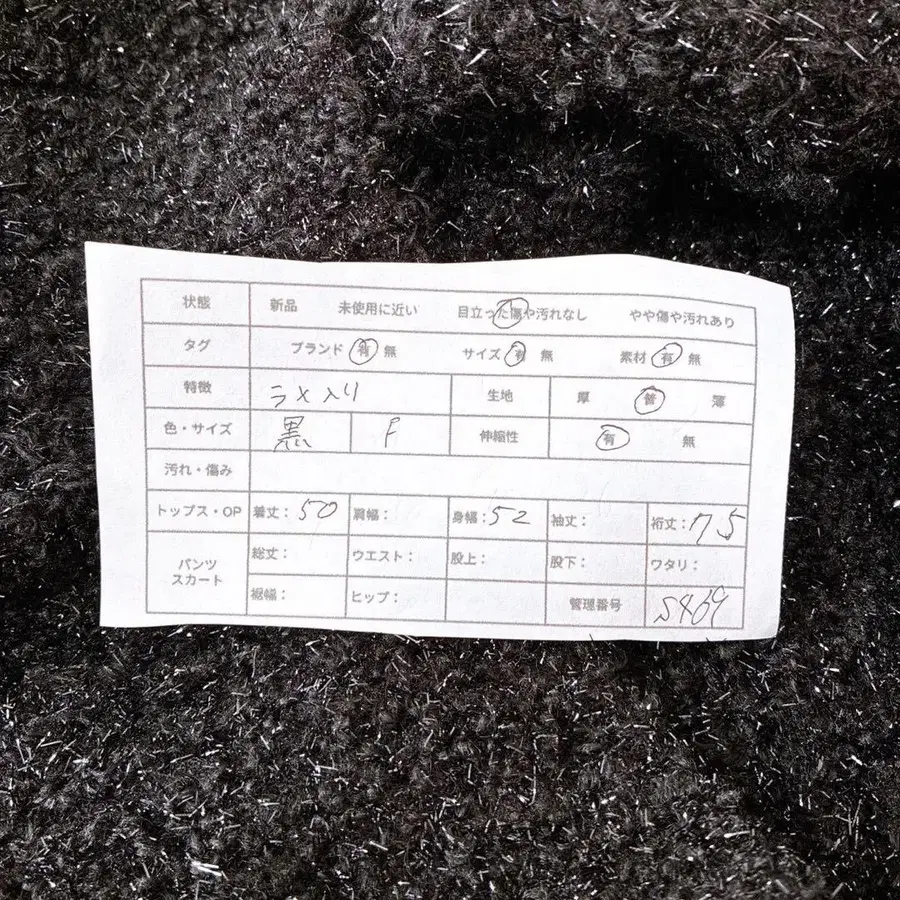 状態 新品 未使用に近い 目立った傷や汚れなし やや傷や汚れあり
タグ ブランド 有 無 サイズ 有 無 素材 有 無
特徴 ラメ入り 生地 厚 普 薄
色・サイズ 黒 F 伸縮性 有 無
汚れ・傷み
トップス・OP 着丈： 50 肩幅： 身幅： 52 袖丈： 裄丈： 75
パンツ スカート 総丈： ウエスト： 股上： 股下： ワタリ：
裾幅： ヒップ： 管理番号 S469